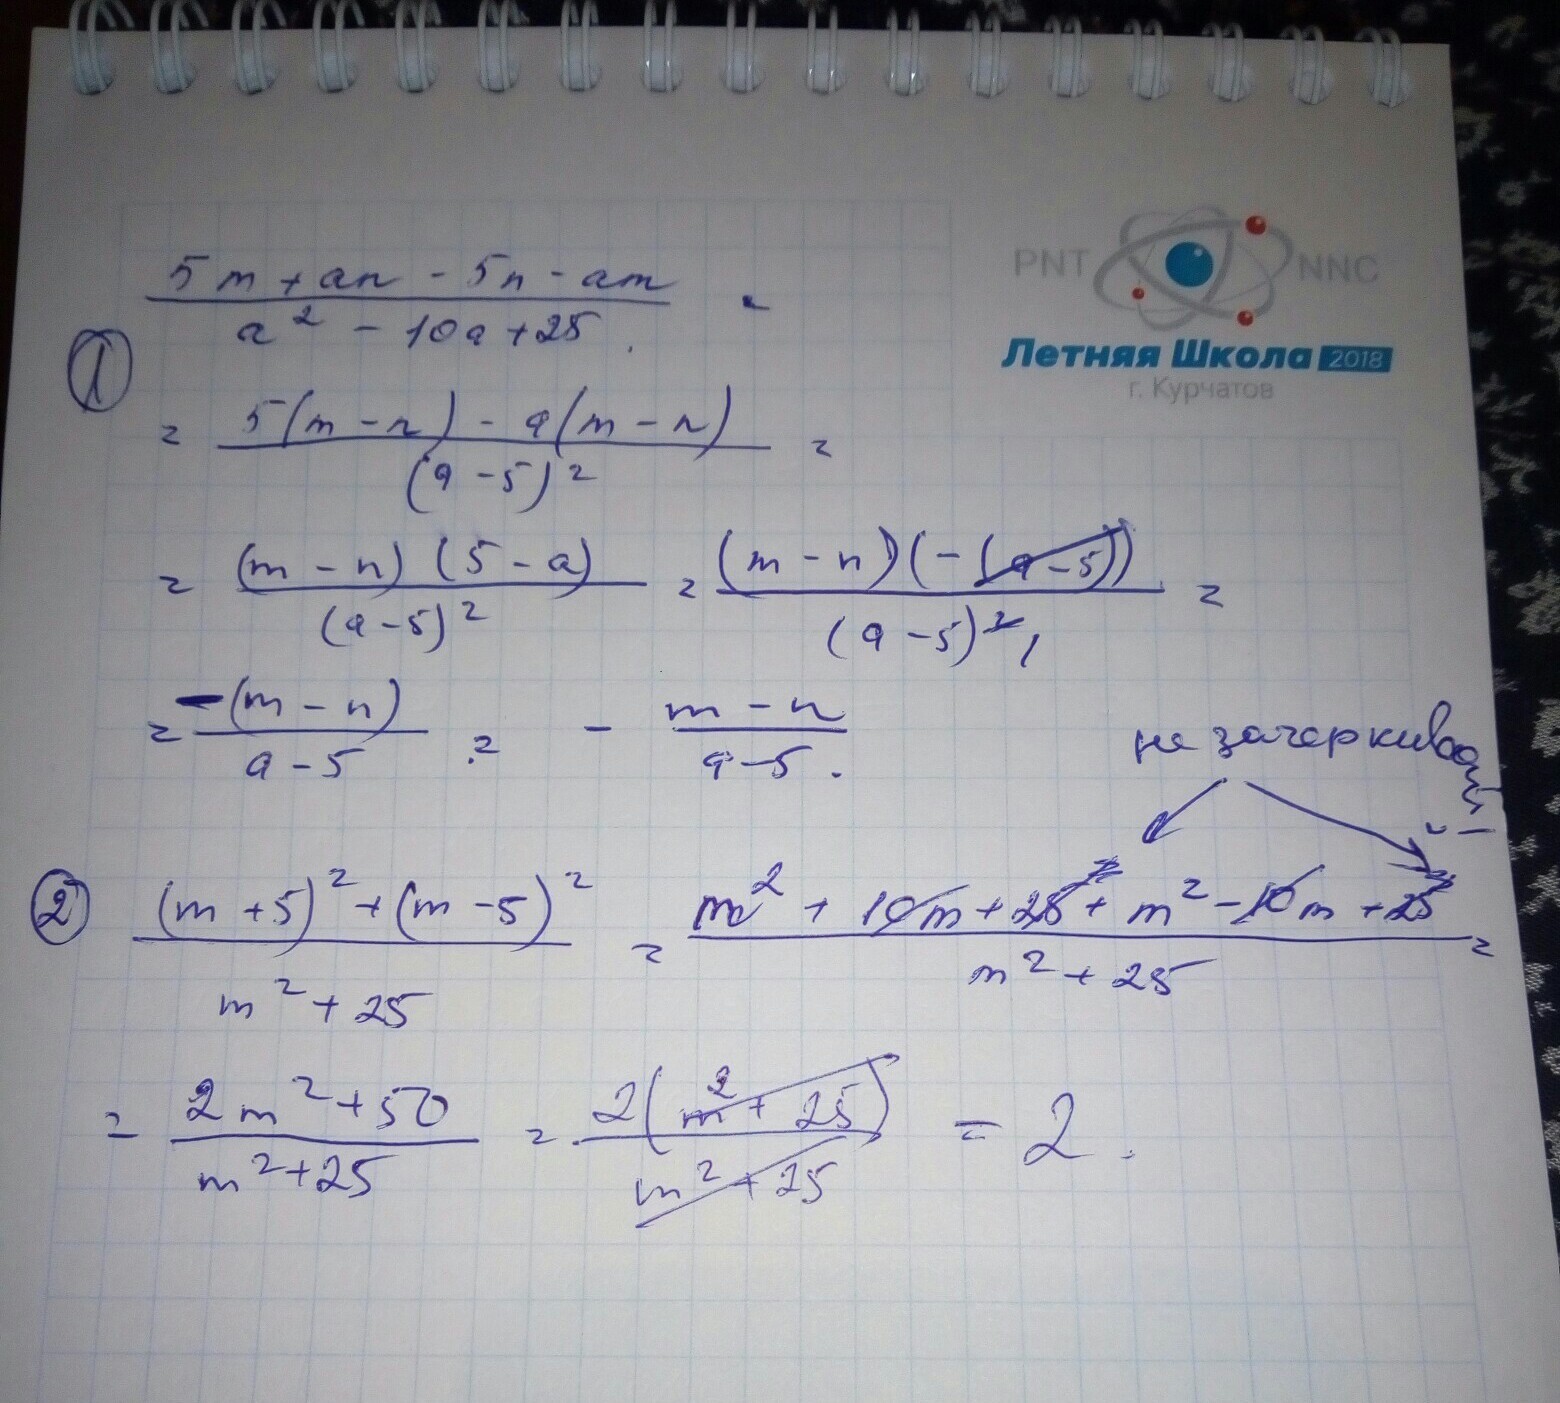 PNT NNC
Летняя Школа 2018
г. Курчатов
①
(5m + an - 5n - am)/(a² - 10a + 25) =
= (5(m - n) - a(m - n))/(a - 5)² =
= ((m - n)(5 - a))/(a - 5)² = ((m - n)(-(a - 5)))/(a - 5)² 1 =
= (-(m - n))/(a - 5) = - (m - n)/(a - 5).
не зачеркивай!
② ((m + 5)² + (m - 5)²)/(m² + 25) = (m² + 10m + 25 + m² - 10m + 25)/(m² + 25) =
= (2m² + 50)/(m² + 25) = (2(m² + 25))/(m² + 25) = 2.